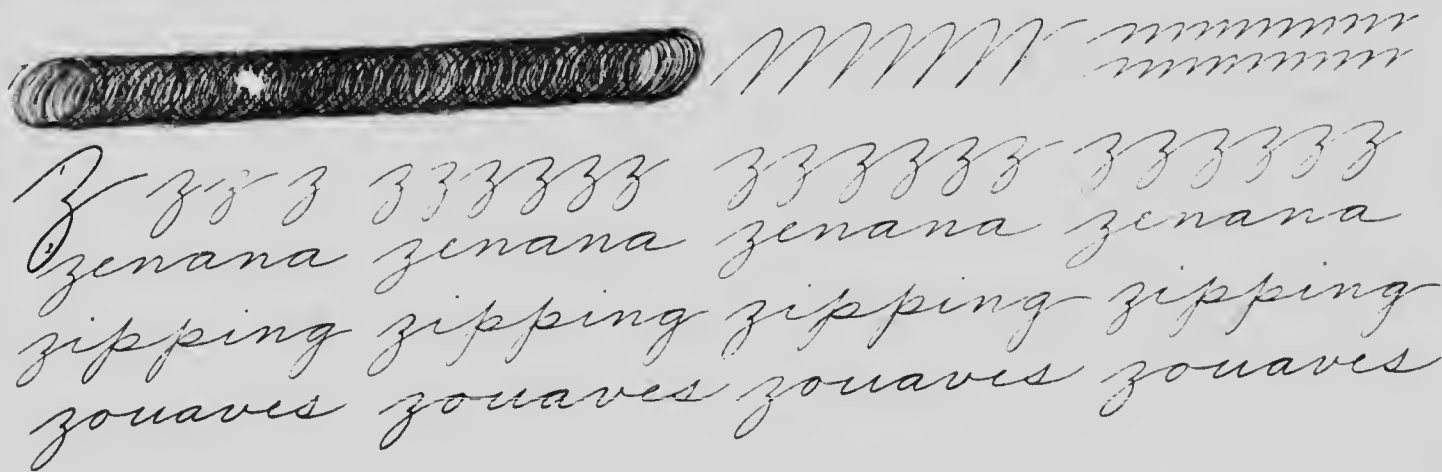 z zz z zzzzzz zzzzzz zzzzzz
zenana zenana zenana zenana
zipping zipping zipping zipping
zouaves zouaves zouaves zouaves